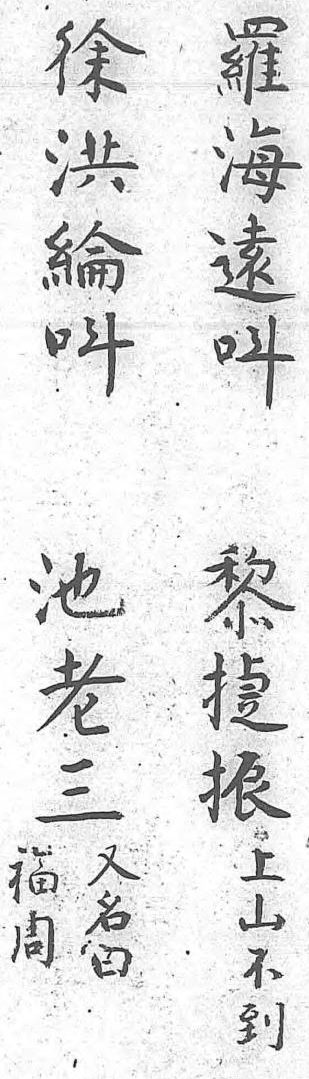 羅海遠叫
黎捷振上山不到
徐洪綸叫
池老三又名曰福周